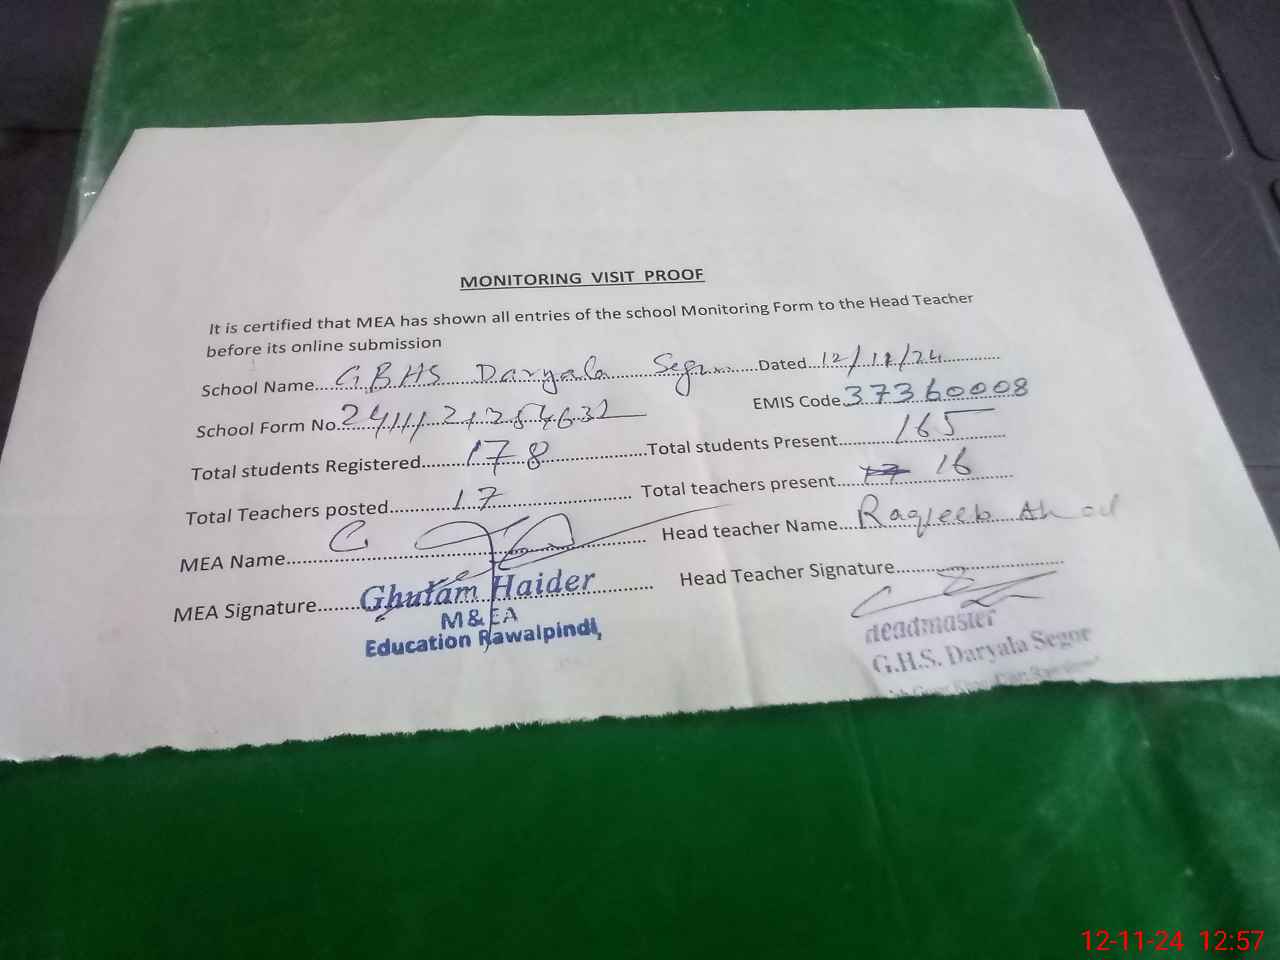 MONITORING VISIT PROOF
It is certified that MEA has shown all entries of the school Monitoring Form to the Head Teacher
before its online submission
School Name... GBHS Daryala Segon Dated... 12/11/24
School Form No. EMIS Code 37360008
Total students Registered... 178 Total students Present... 165
Total Teachers posted... 17 Total teachers present... 16
MEA Name... Head teacher Name... Raqeeb Ahmad
MEA Signature... Head Teacher Signature...
Ghulam Haider
M&EA
Education Rawalpindi,
Headmaster
G.H.S. Daryala Segon
12-11-24 12:57